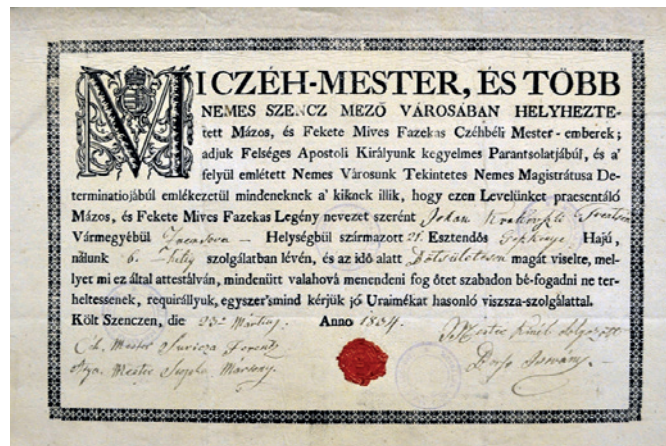 MI CZÉH-MESTER, ÉS TÖBB
NEMES SZENCZ MEZŐ VÁROSÁBAN HELYHEZTE-
tett Mázos, és Fekete Mives Fazekas Czéhbéli Mester-emberek;
adjuk Felséges Apostoli Királyunk kegyelmes Parantsolatjábúl, és a'
felyül emlétett Nemes Városunk Tekintetes Nemes Magistrátusa De-
terminatiojábúl emlékezetül mindeneknek a' kiknek illik, hogy ezen Levelünket praesentáló
Mázos, és Fekete Mives Fazekas Legény nevezet szerént Johan
Vármegyébül Helységbül származott 21. Esztendős Hajú,
nálunk 6. szolgálatban lévén, és az idő alatt magát viselte, mel-
lyet mi ez által attestálván, mindenütt valahová menendeni fog őtet szabadon bé-fogadni ne ter-
heltessenek, requirállyuk, egyszer'smind kérjük jó Uraimékat hasonló viszsza-szolgálattal.
Költ Szenczen, die 23 Martii. Anno 1834.
Mester
Mester